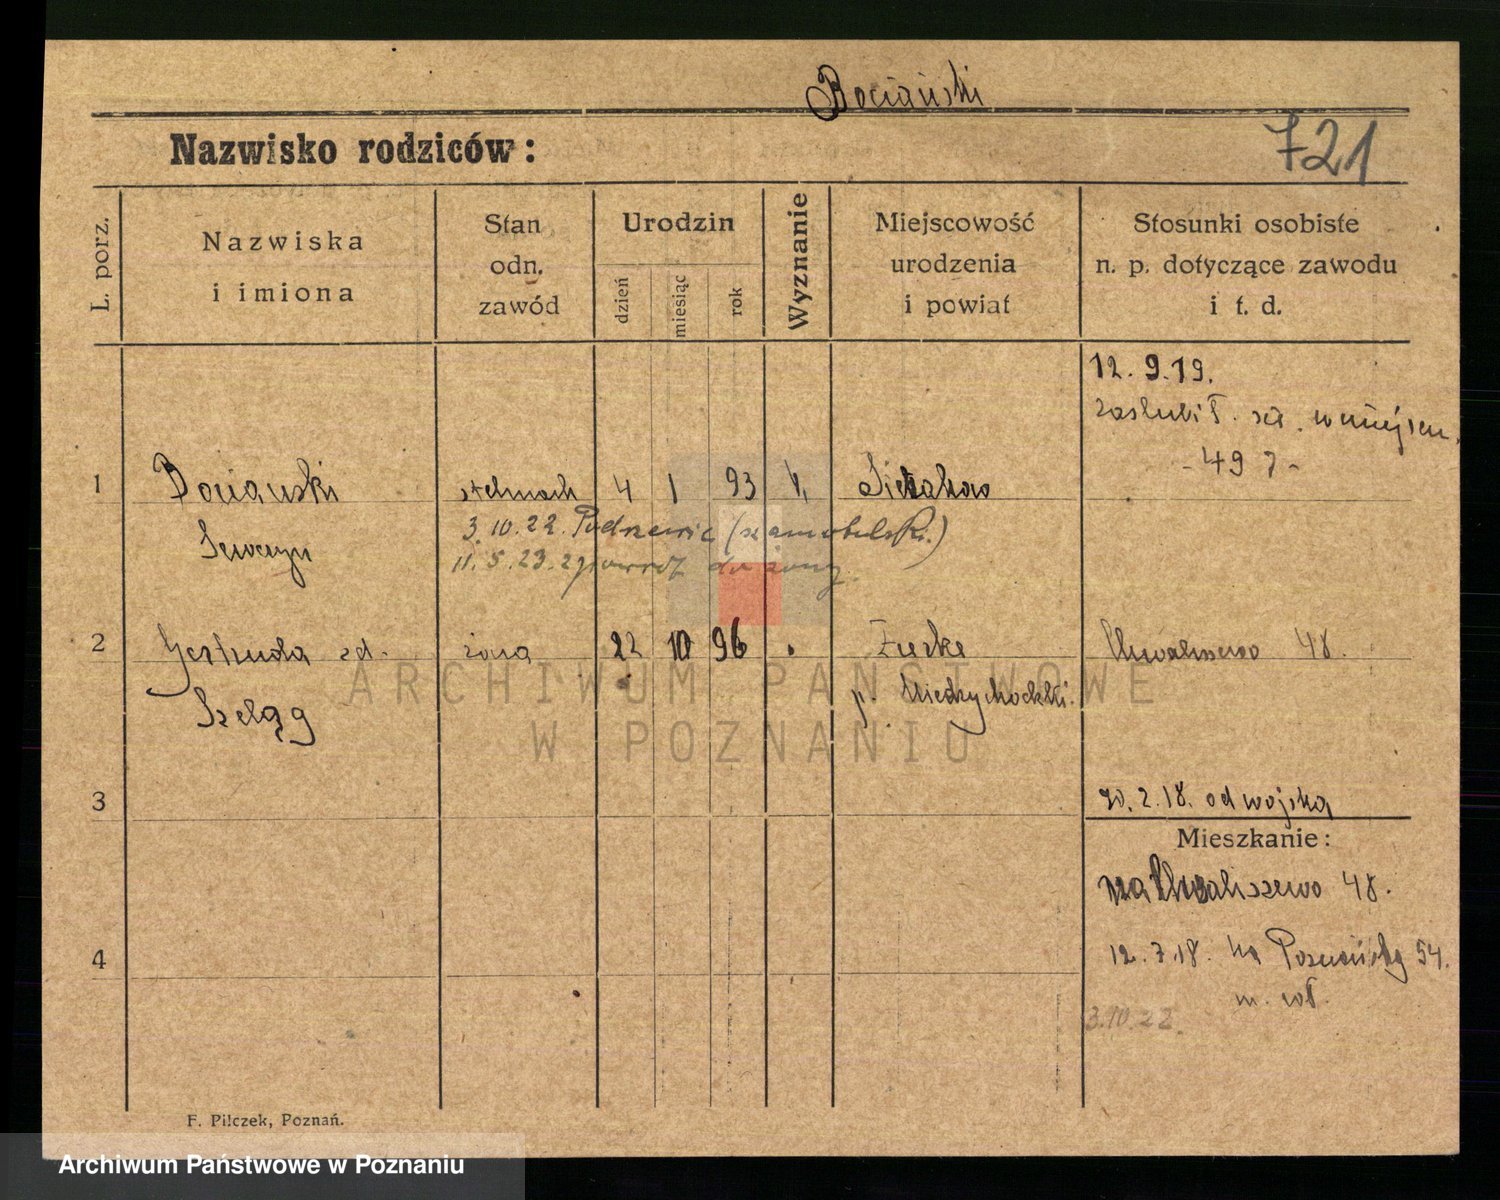 Bociański
Nazwisko rodziców:
721
L. porz.
Nazwiska
i imiona
Stan
odn.
zawód
Urodzin
dzień
miesiąc
rok
Wyznanie
Miejscowość
urodzenia
i powiat
Stosunki osobiste
n. p. dotyczące zawodu
i t. d.
12. 9. 19.
zaslubił się w miejscu
- 497 -
1
Bocianski
stelmach
4
1
93
Sierakow
3.10.22. Podrzewie (szamotulski.)
Seweryn
11.5.23. zpowrot do żony.
2
Gertruda zd.
żona
22
10
96
p. Miedzychodzki.
Chwaliszewo 48.
Szeląg
3
20.2.18. od wojska
Mieszkanie:
na Chwaliszewo 48.
4
12.7.18. na Poznańską 54.
3.10.22.
F. Pilczek, Poznań.
ARCHIWUM PAŃSTWOWE
W POZNANIU
Archiwum Państwowe w Poznaniu